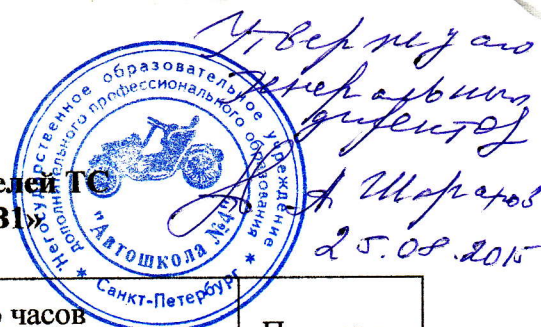 Утверждаю
генеральный
директор
А Шарапов
25.08.2015
Негосударственное образовательное учреждение
дополнительного профессионального образования
"Автошкола №4"
* Санкт-Петербург *
елей ТС
В1»
часов